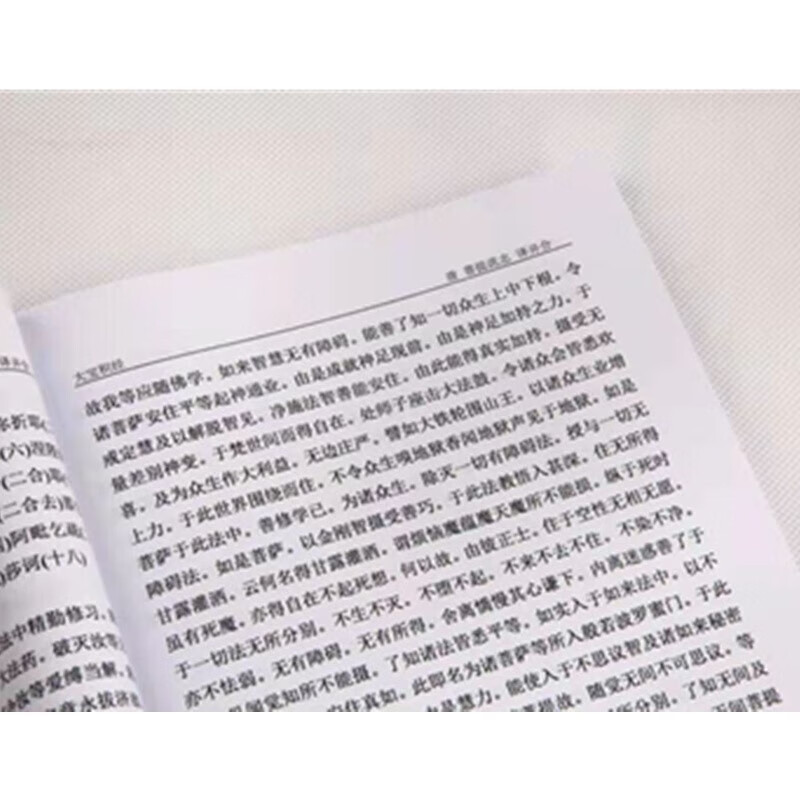 大宝积经
唐 菩提流志 译并合
故我等应随佛学。如来智慧无有障碍。能善了知一切众生上中下根。令
诸菩萨安住平等起神通业。由是成就神足现前。由是神足加持之力。于
戒定慧及以解脱智见。净施法智善能安住。由此能得真实加持。摄受无
量差别神变。于梵世间而得自在。处师子座击大法鼓。令诸众会皆悉欢
喜。及为众生作大利益。无边庄严。譬如大铁轮围山王。以诸众生业增
上力。于此世界围绕而住。不令众生嗅地狱香闻地狱声见于地狱。如是
菩萨于此法中。善修学已。为诸众生。除灭一切有障碍法。授与一切无
障碍法。如是菩萨。以金刚智摄受善巧。于此法教悟入甚深。住无所得
甘露灌洒。云何名得甘露灌洒。谓烦恼魔蕴魔天魔所不能损。纵于死时
虽有死魔。亦得自在不起死想。何以故。由彼正士。住于空性无相无愿。
于一切法无所分别。不生不灭。不堕不起。不来不去不住。不染不净。
亦不怯弱。无有障碍。无有所得。舍离憍慢其心谦下。内离迷惑善了于
见闻觉知所不能摄。了知诸法皆悉平等。如实入于如来法中。以不
安住真如。此即名为诸菩萨等所入般若波罗蜜门。于此
由是慧力。能使入于不思议智及诸如来秘密
菩提故。随觉无间不可思议。等
所分别。了知无间及
无间菩提
(六)涅
(二合)
(二合去)
阿毗乞
莎诃(十八)
中精勤修习
法药。破灭汝等
汝等爱缚当解
永拔济